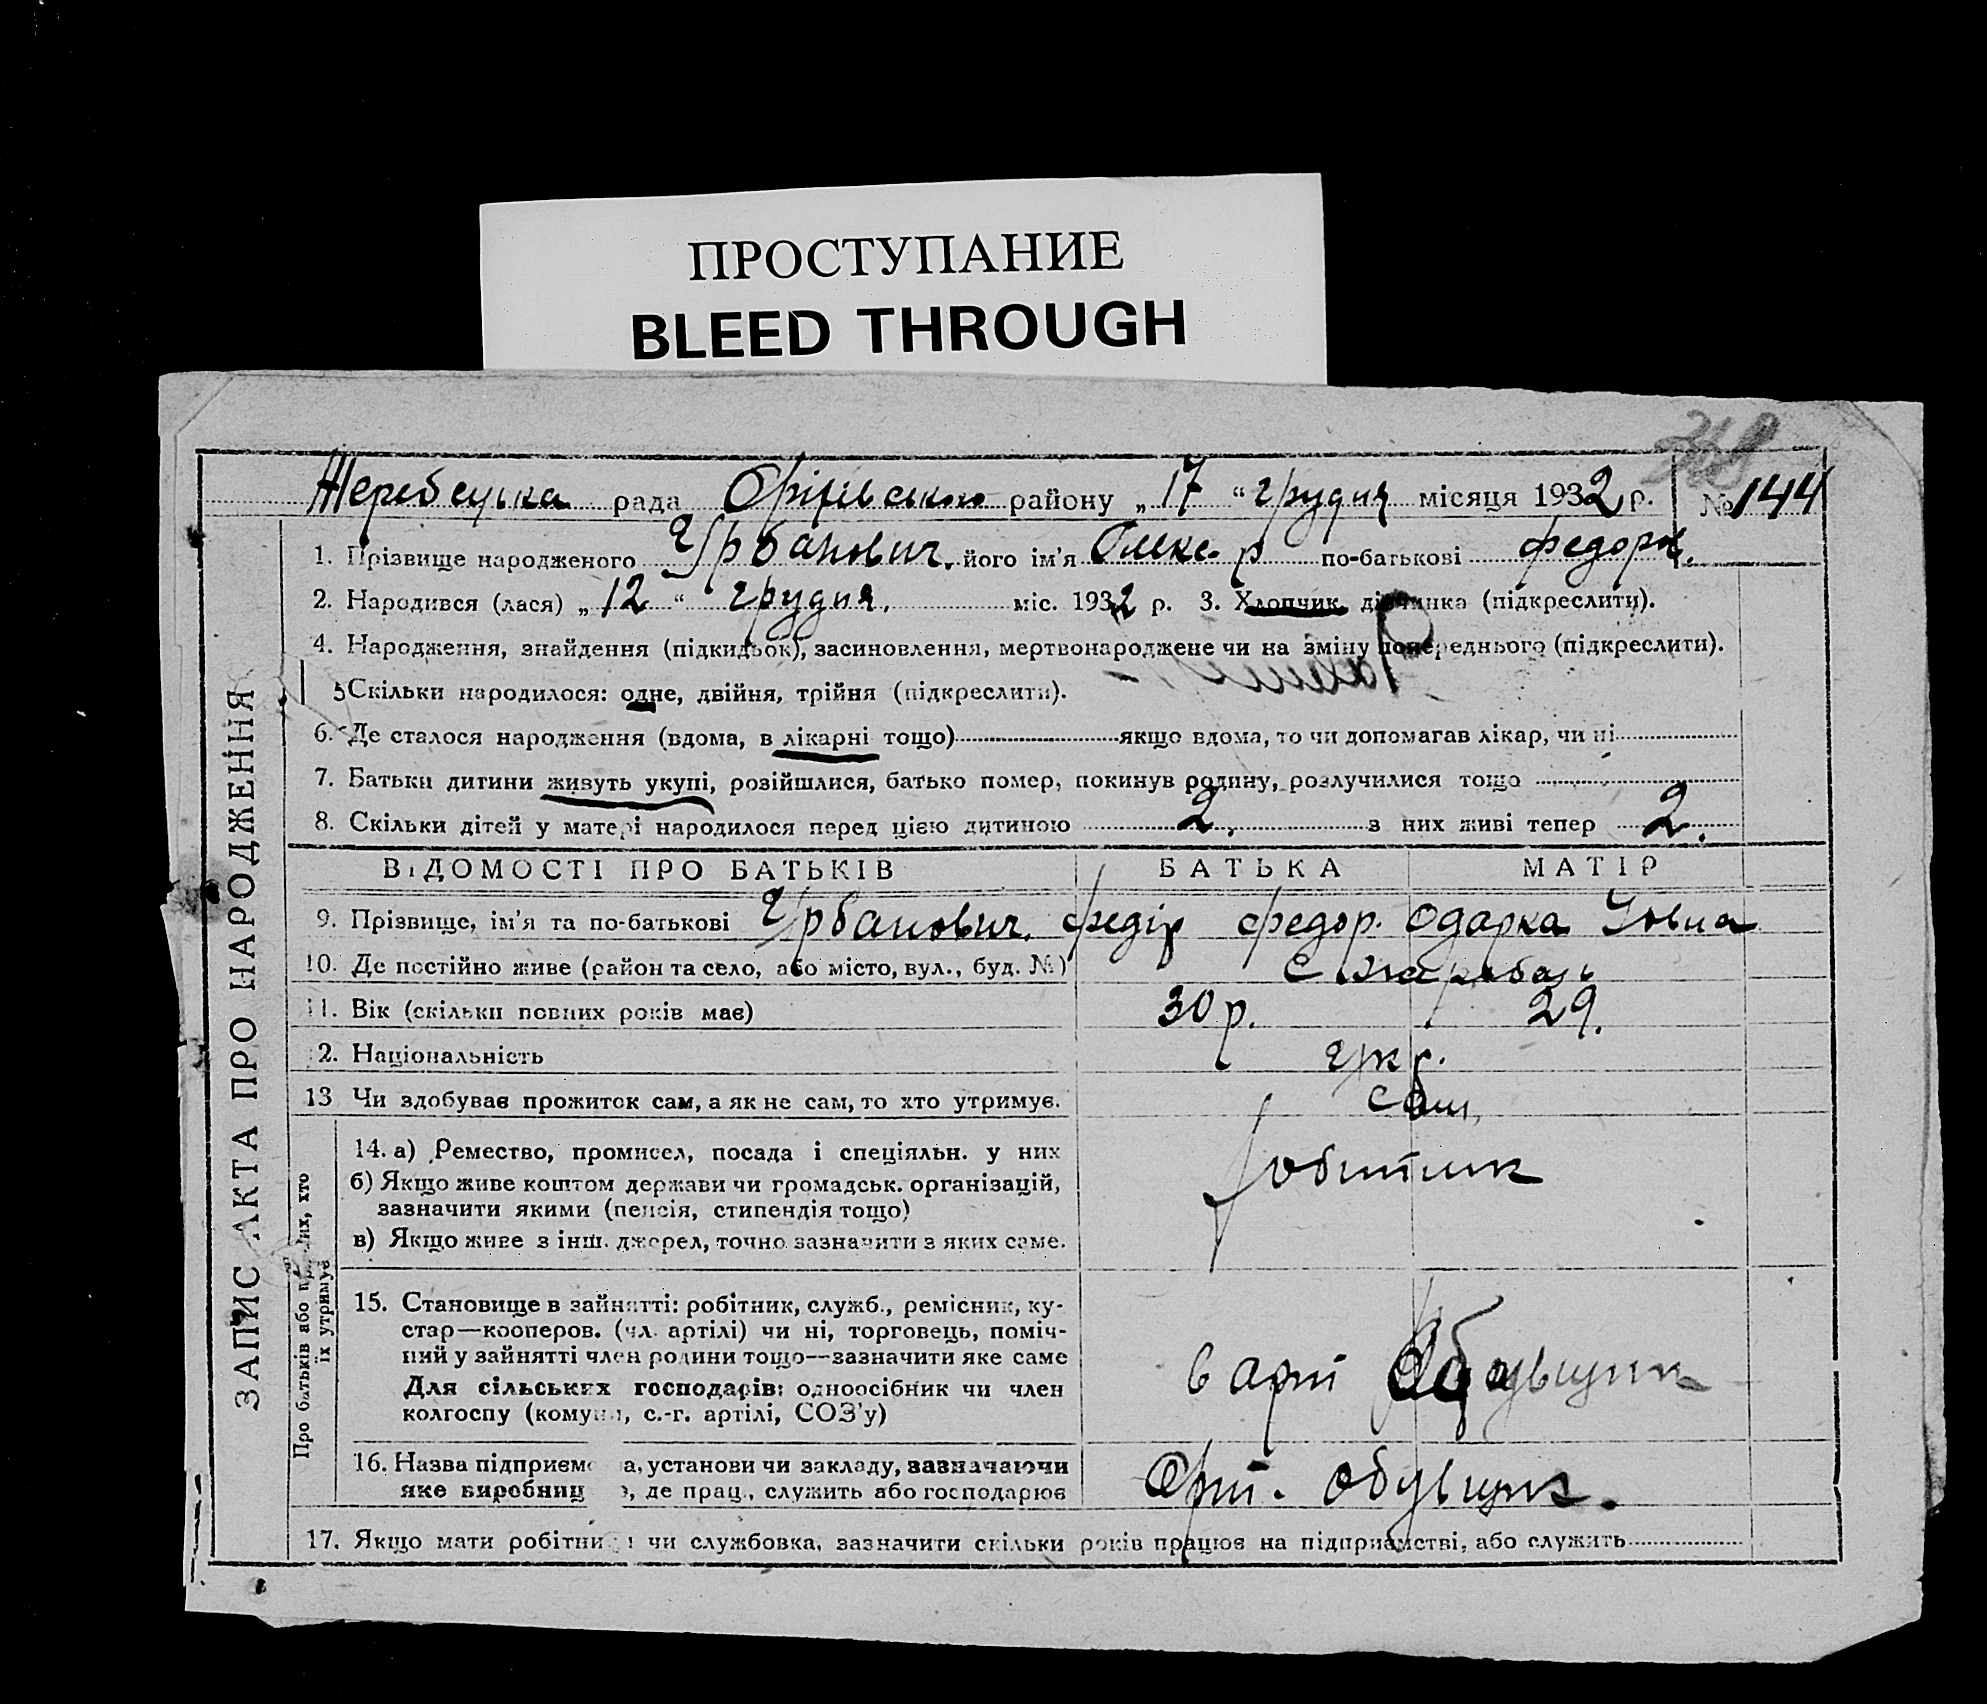 ПРОСТУПАНИЕ
BLEED THROUGH
Жеребецька рада Оріхівського району „17“ грудня місяця 1932 р. № 144
1. Прізвище народженого Урбанович. його ім'я Олекс-р по-батькові Федоров.
2. Народився (лася) „12“ грудня. міс. 1932 р. 3. Хлопчик, дівчинка (підкреслити).
4. Народження, знайдення (підкидьок), засиновлення, мертвонароджене чи на зміну попереднього (підкреслити).
5 Скільки народилося: одне, двійня, трійня (підкреслити).
6. Де сталося народження (вдома, в лікарні тощо) якщо вдома, то чи допомагав лікар, чи ні
7. Батьки дитини живуть укупі, розійшлися, батько помер, покинув родину, розлучилися тощо
8. Скільки дітей у матері народилося перед цією дитиною 2, з них живі тепер 2.
ВІДОМОСТІ ПРО БАТЬКІВ БАТЬКА МАТІР
9. Прізвище, ім'я та по-батькові Урбанович. Федір Федор. Одарка Іовна
10. Де постійно живе (район та село, або місто, вул., буд. №) С.
11. Вік (скільки повних років має) 30 р. 29.
12. Національність Укр.
13 Чи здобуває прожиток сам, а як не сам, то хто утримує. Сам,
14. а) Ремество, промисел, посада і спеціяльн. у них робітник
б) Якщо живе коштом держави чи громадськ. організацій,
зазначити якими (пенсія, стипендія тощо)
в) Якщо живе з інш. джерел, точно зазначити з яких саме.
15. Становище в зайнятті: робітник, служб., ремісник, ку-
стар—кооперов. (чл. артілі) чи ні, торговець, поміч-
ний у зайнятті член родини тощо—зазначити яке саме
Для сільських господарів: одноосібник чи член
колгоспу (комуни, с.-г. артілі, СОЗ'у)
в арт Обувщик
16. Назва підприємс а, установи чи закладу, зазначаючи
яке виробниц о, де прац., служить або господарює
Арт. обувщик.
17. Якщо мати робітниця чи службовка, зазначити скільки років працює на підприємстві, або служить
ЗАПИС АКТА ПРО НАРОДЖЕННЯ
Про батьків або про них, хто
їх утримує